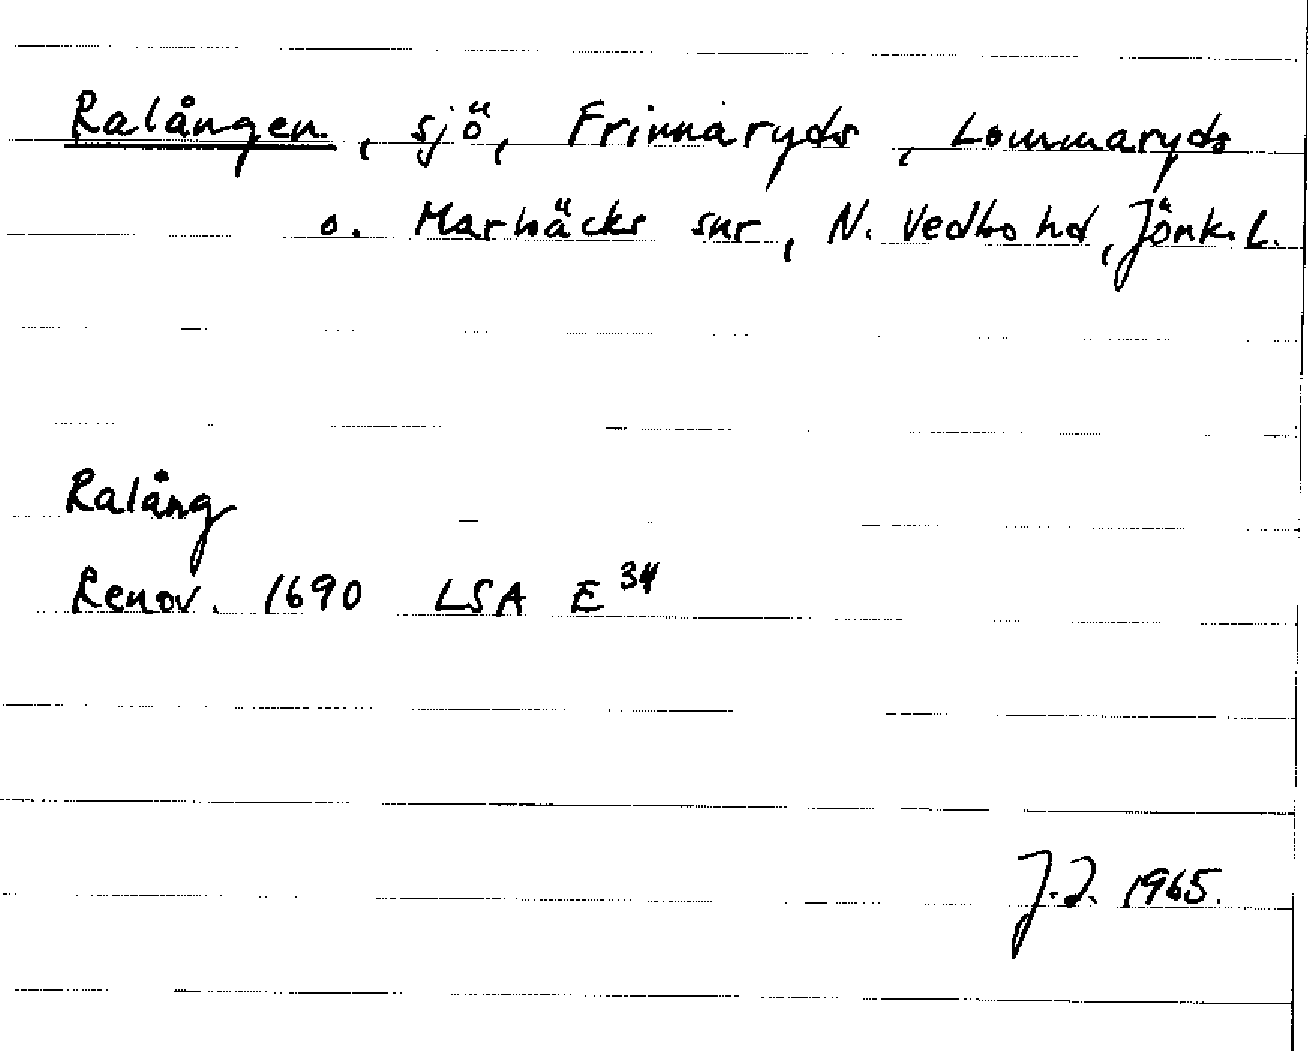 Ralången, sjö, Frinnaryds, Lommaryds
o. Marbäcks snr, N. Vedbo hd, Jönk. L.
Ralång
Renov. 1690 LSA E 34
J.I. 1965.